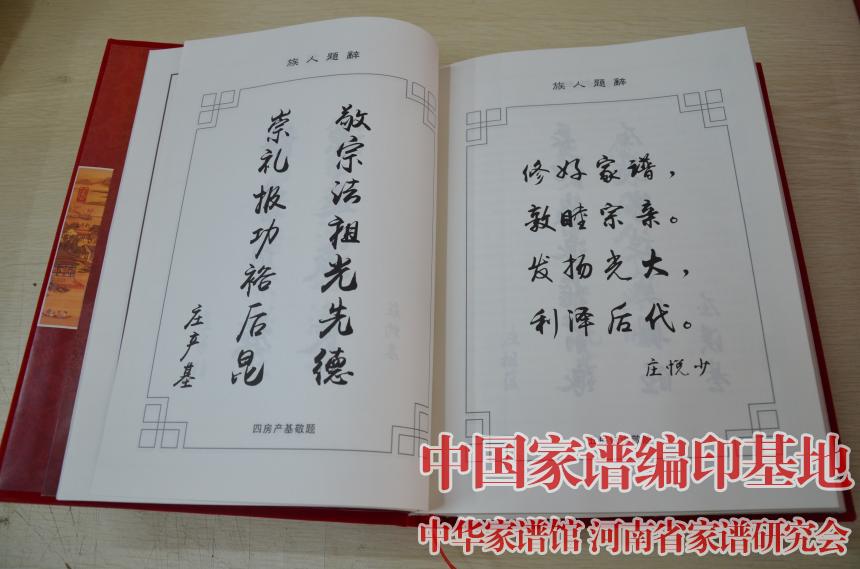 族人題辭
敬宗法祖光先德
崇礼报功裕后昆
庄产基
四房产基敬题
族人題辭
修好家谱，
敦睦宗亲。
发扬光大，
利泽后代。
庄悦少
中国家谱编印基地
中华家谱馆 河南省家谱研究会